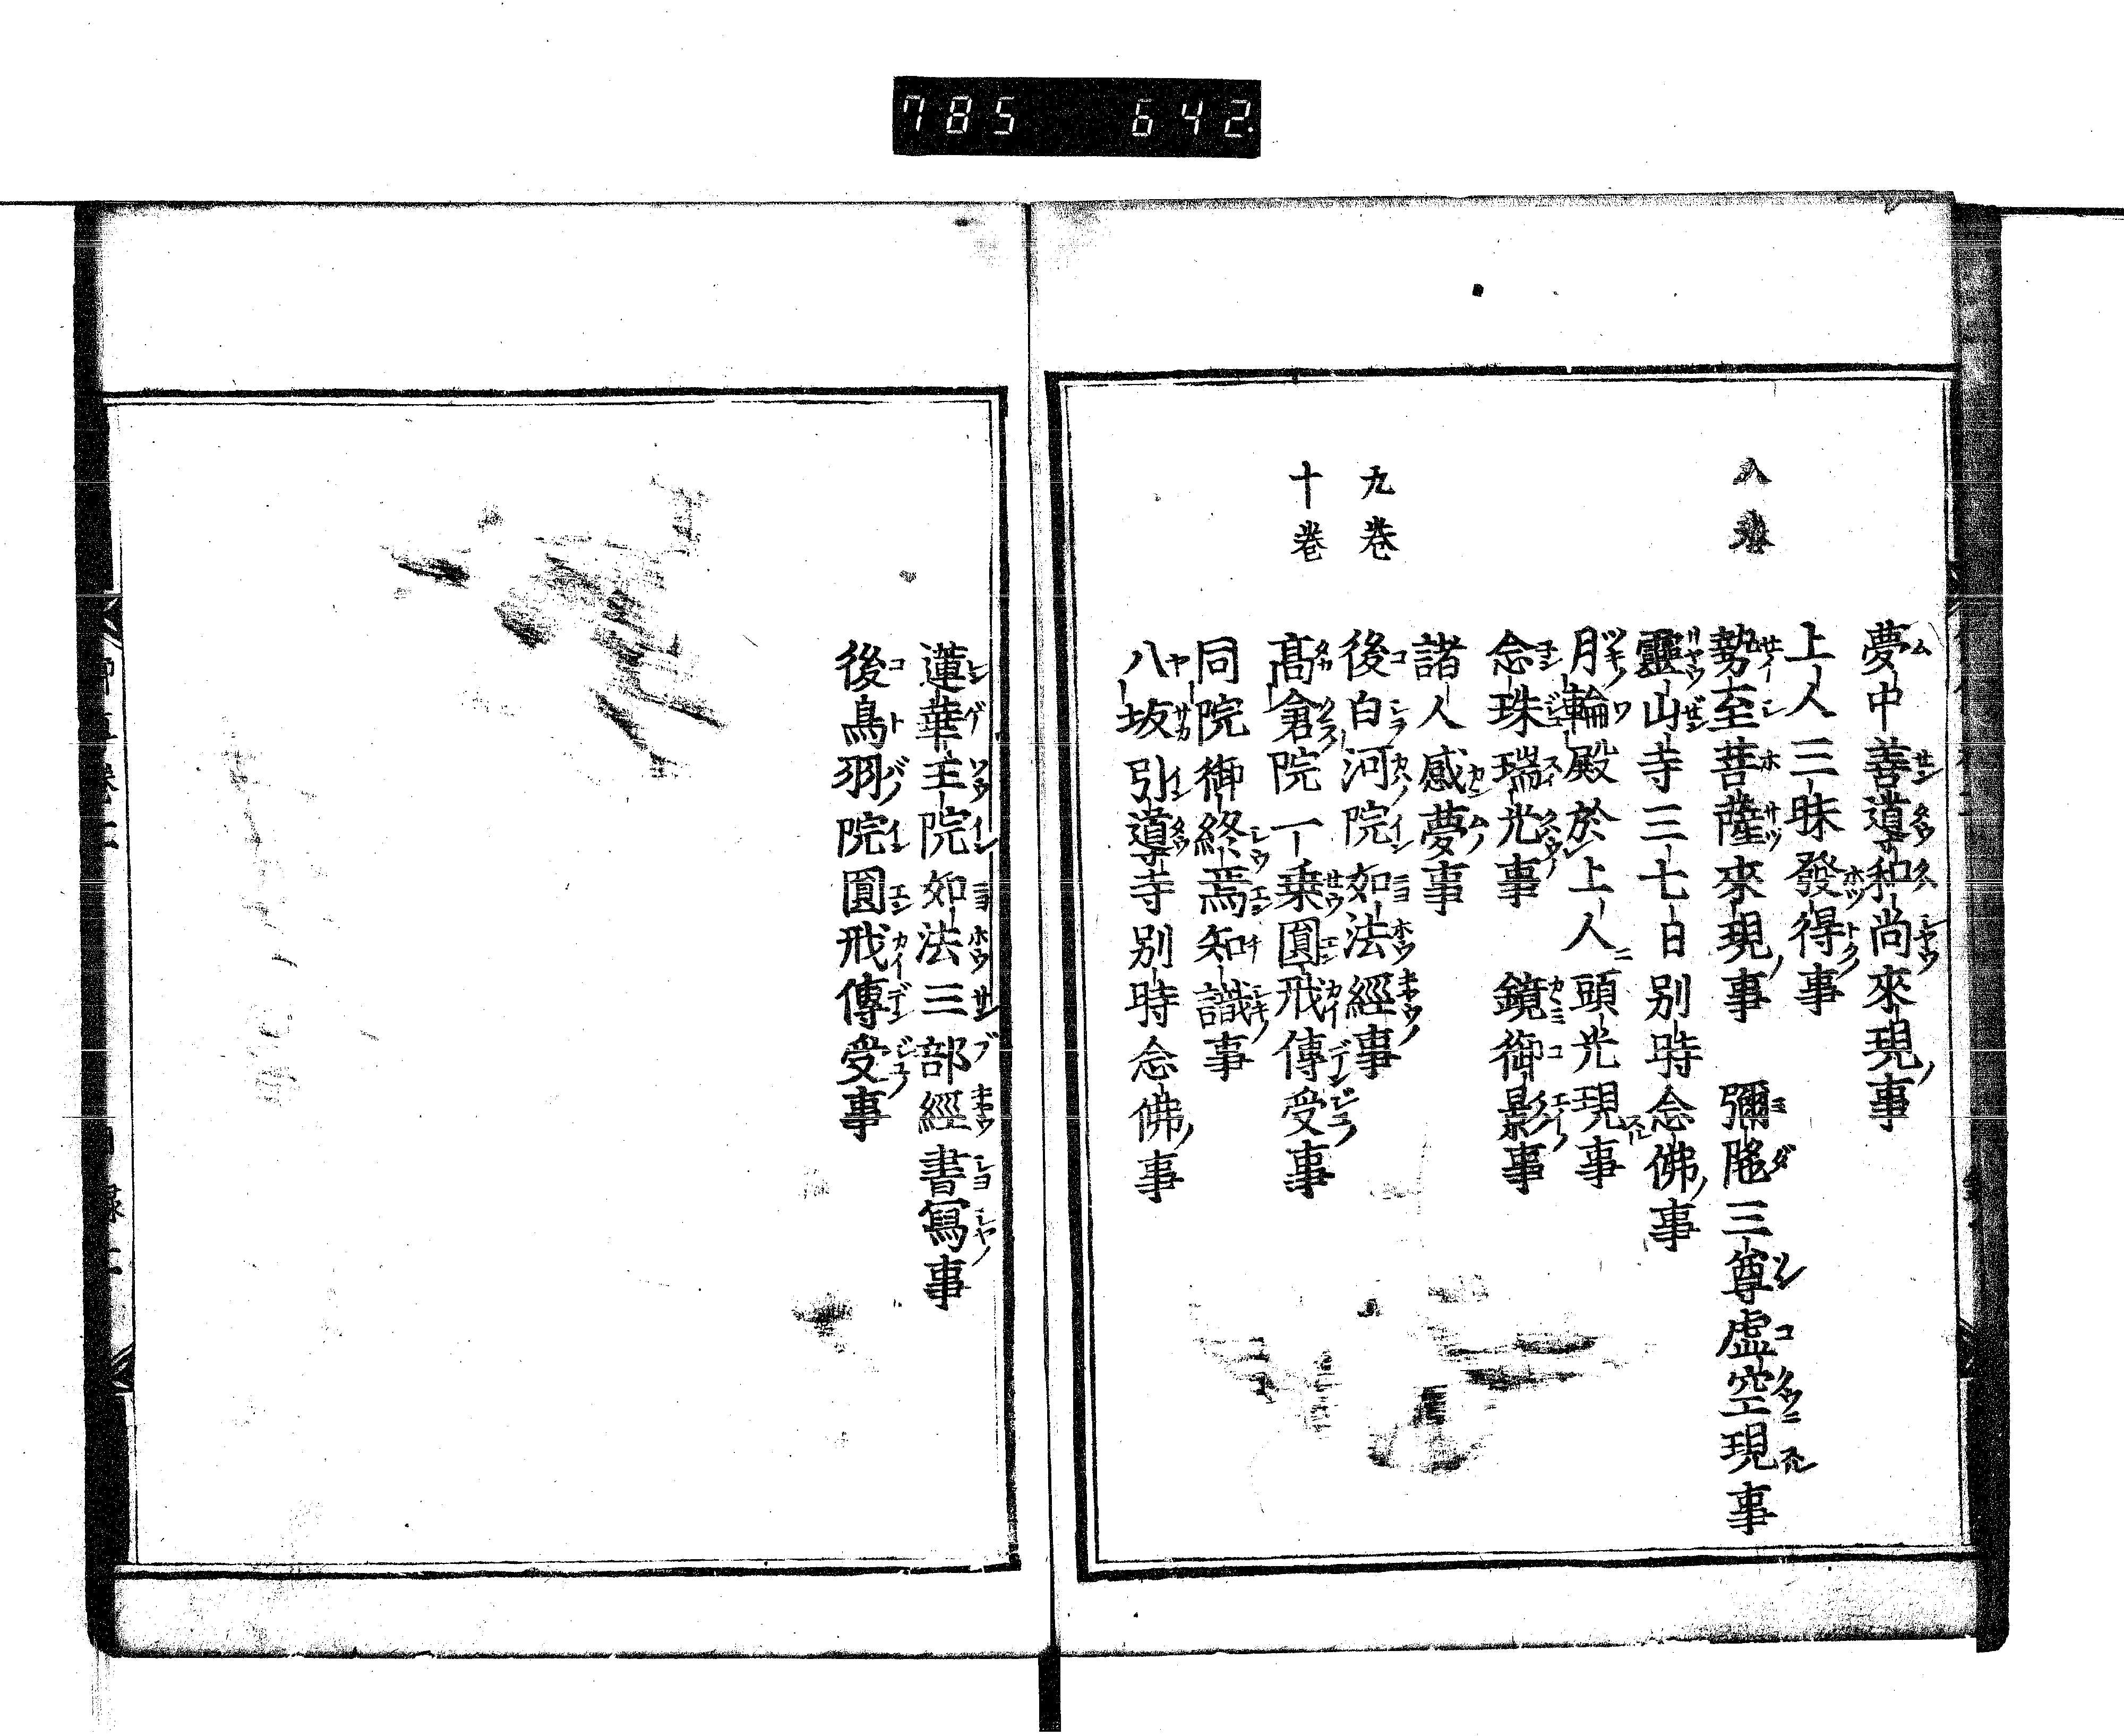 785 642.
夢中善導和尚來現事
上人三昧發得事
八巻
勢至菩薩來現事 彌陀三尊虚空現事
靈山寺三七日别時念佛事
月輪殿於上人頭光現事
念珠瑞光事 鏡御影事
諸人感夢事
九巻
後白河院如法經事
十巻
髙倉院一乗圓戒傳受事
同院御終焉知識事
八坂引導寺别時念佛事
蓮華王院如法三部經書寫事
後鳥羽院圓戒傳受事